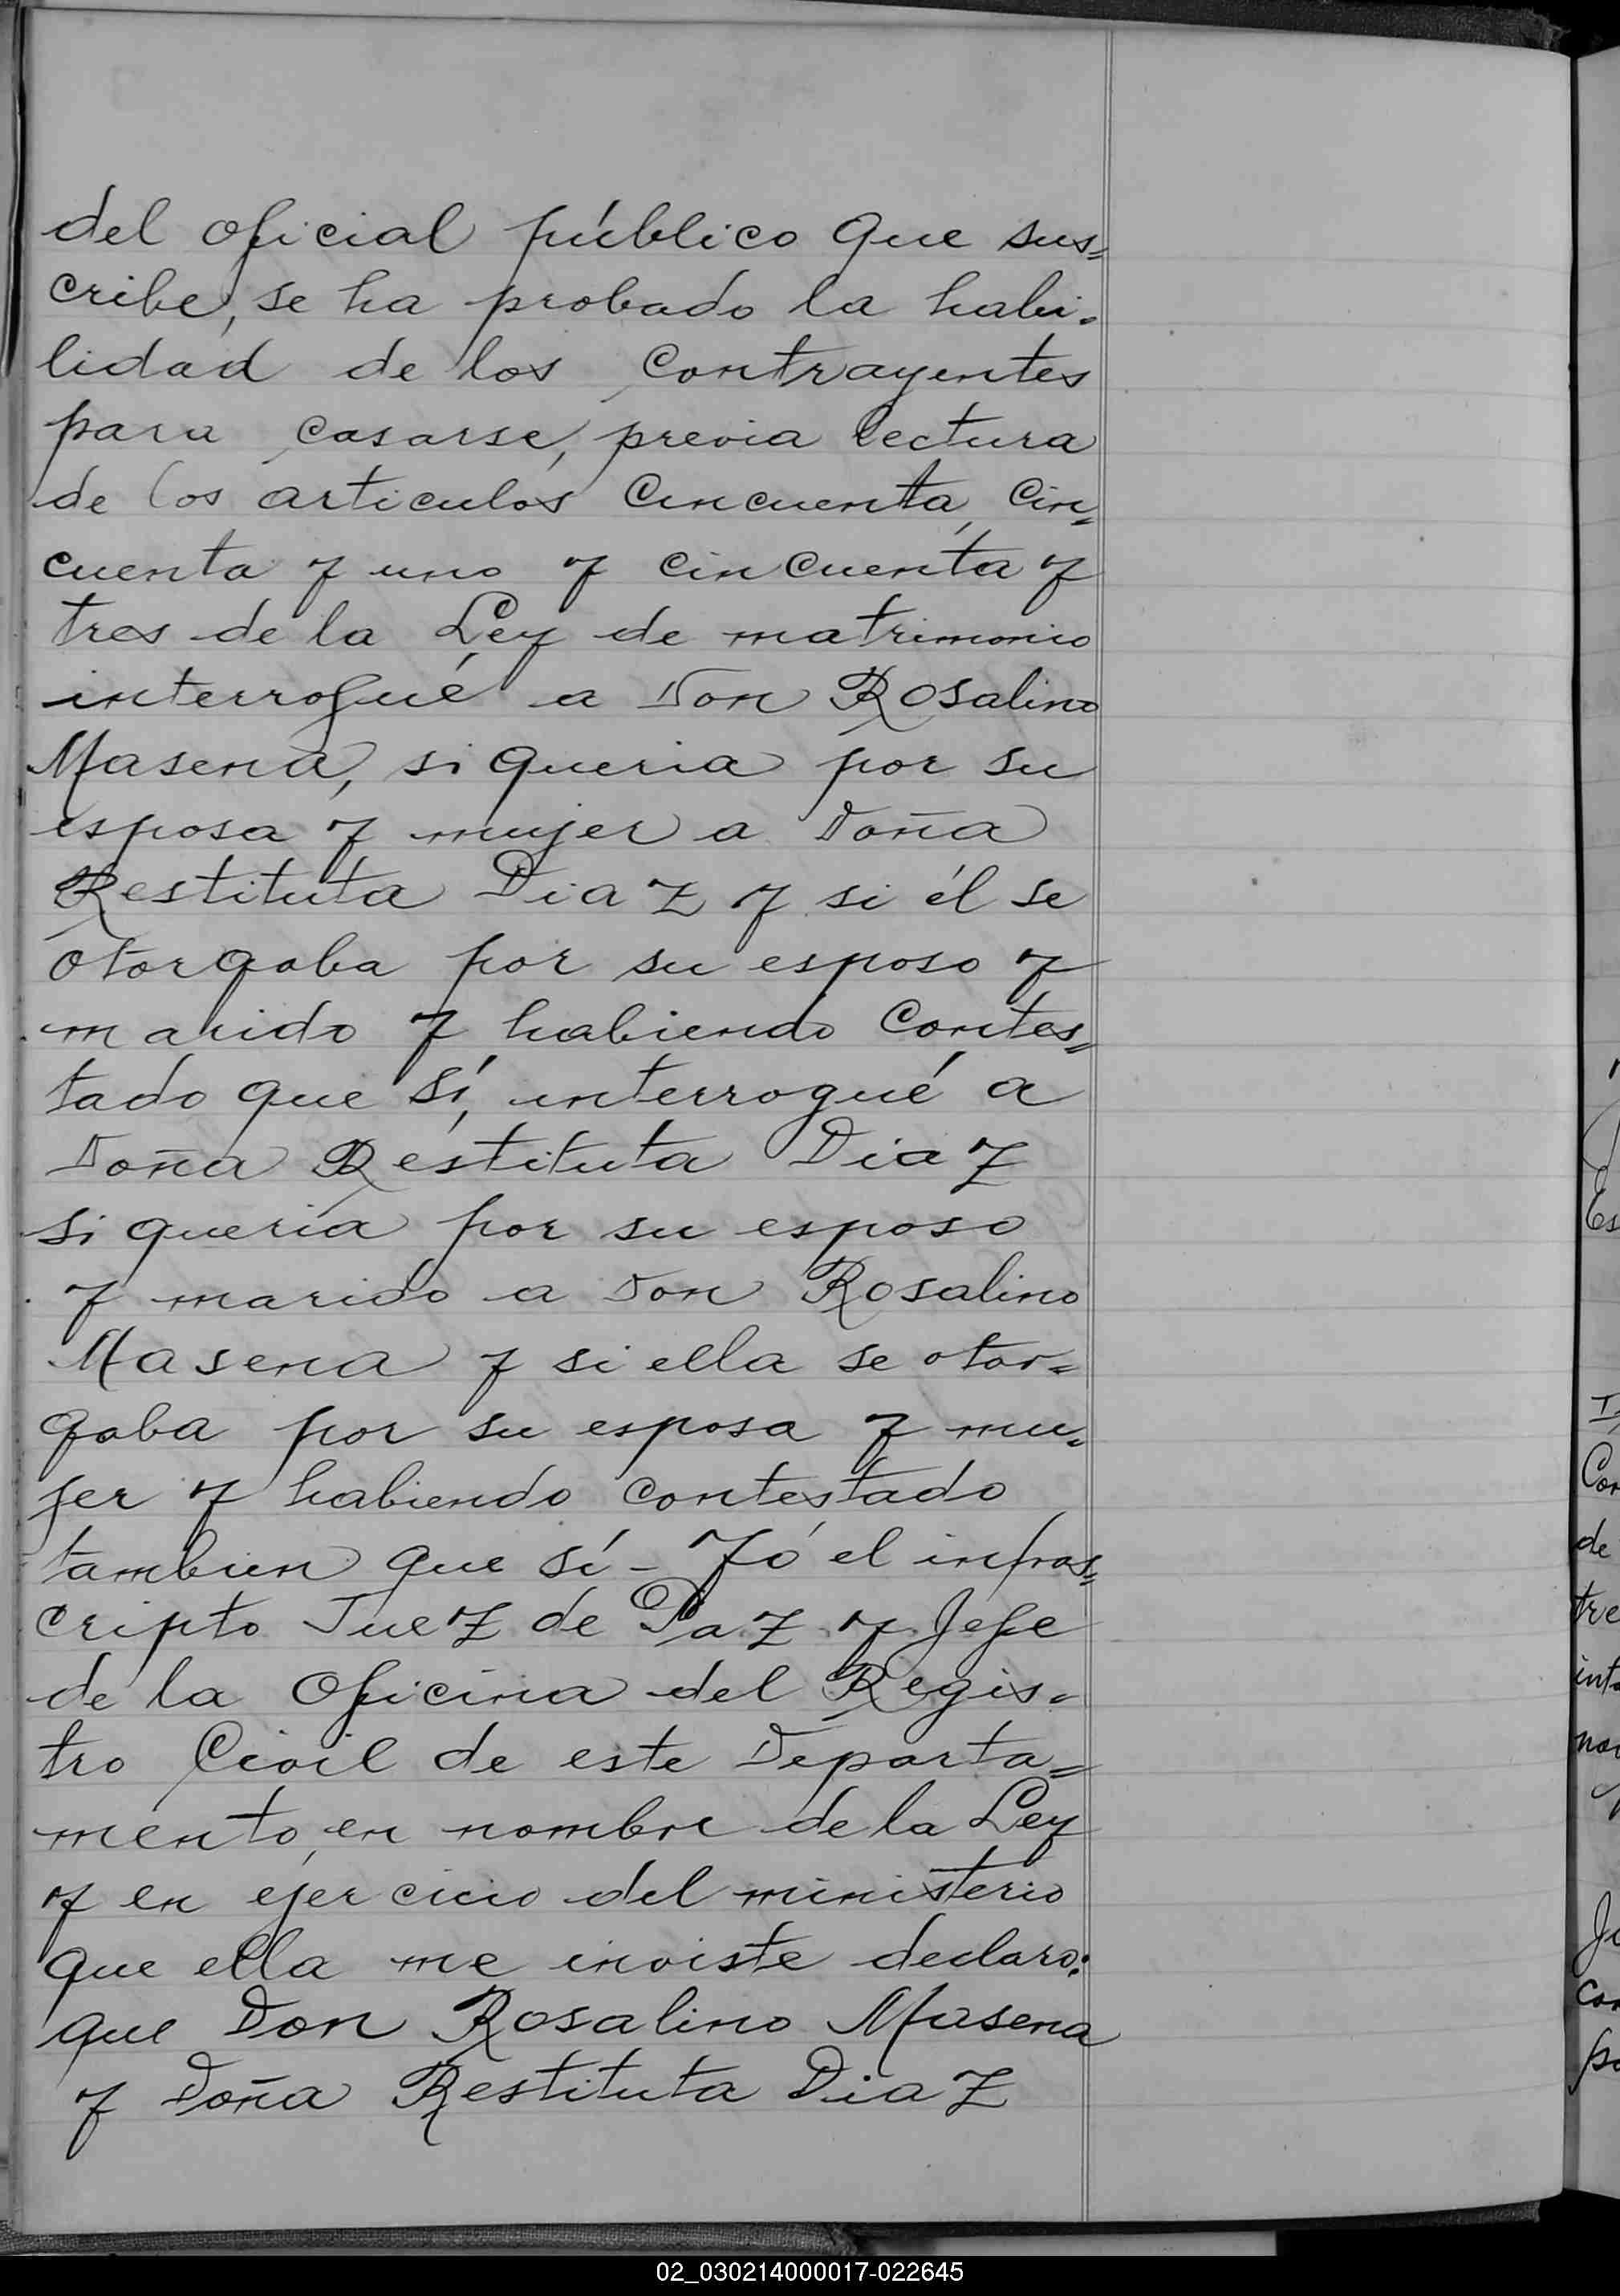 del oficial público que sus=
cribe, se ha probado la habi=
lidad de los contrayentes
para casarse, previa lectura
de los articulos cincuenta, cin=
cuenta y uno y cincuenta y
tres de la Ley de matrimonio
interrogué a Don Rosalino
Masena, si queria por su
esposa y mujer a Doña
Restituta Diaz y si él se
otorgaba por su esposo y
marido y habiendo contes=
tado que sí, interrogué a
Doña Restituta Diaz
si queria por su esposo
y marido a Don Rosalino
Masena y si ella se otor=
gaba por su esposa y mu=
jer y habiendo contestado
tambien que sí - Yó el infras=
cripto Juez de Paz y Jefe
de la Oficina del Regis=
tro Civil de este Departa=
mento, en nombre de la Ley
y en ejercicio del ministerio
que ella me inviste declaro:
que Don Rosalino Masena
y Doña Restituta Diaz
Es
Con
de
tre
int
non
Ju
con
pa
02_030214000017-022645